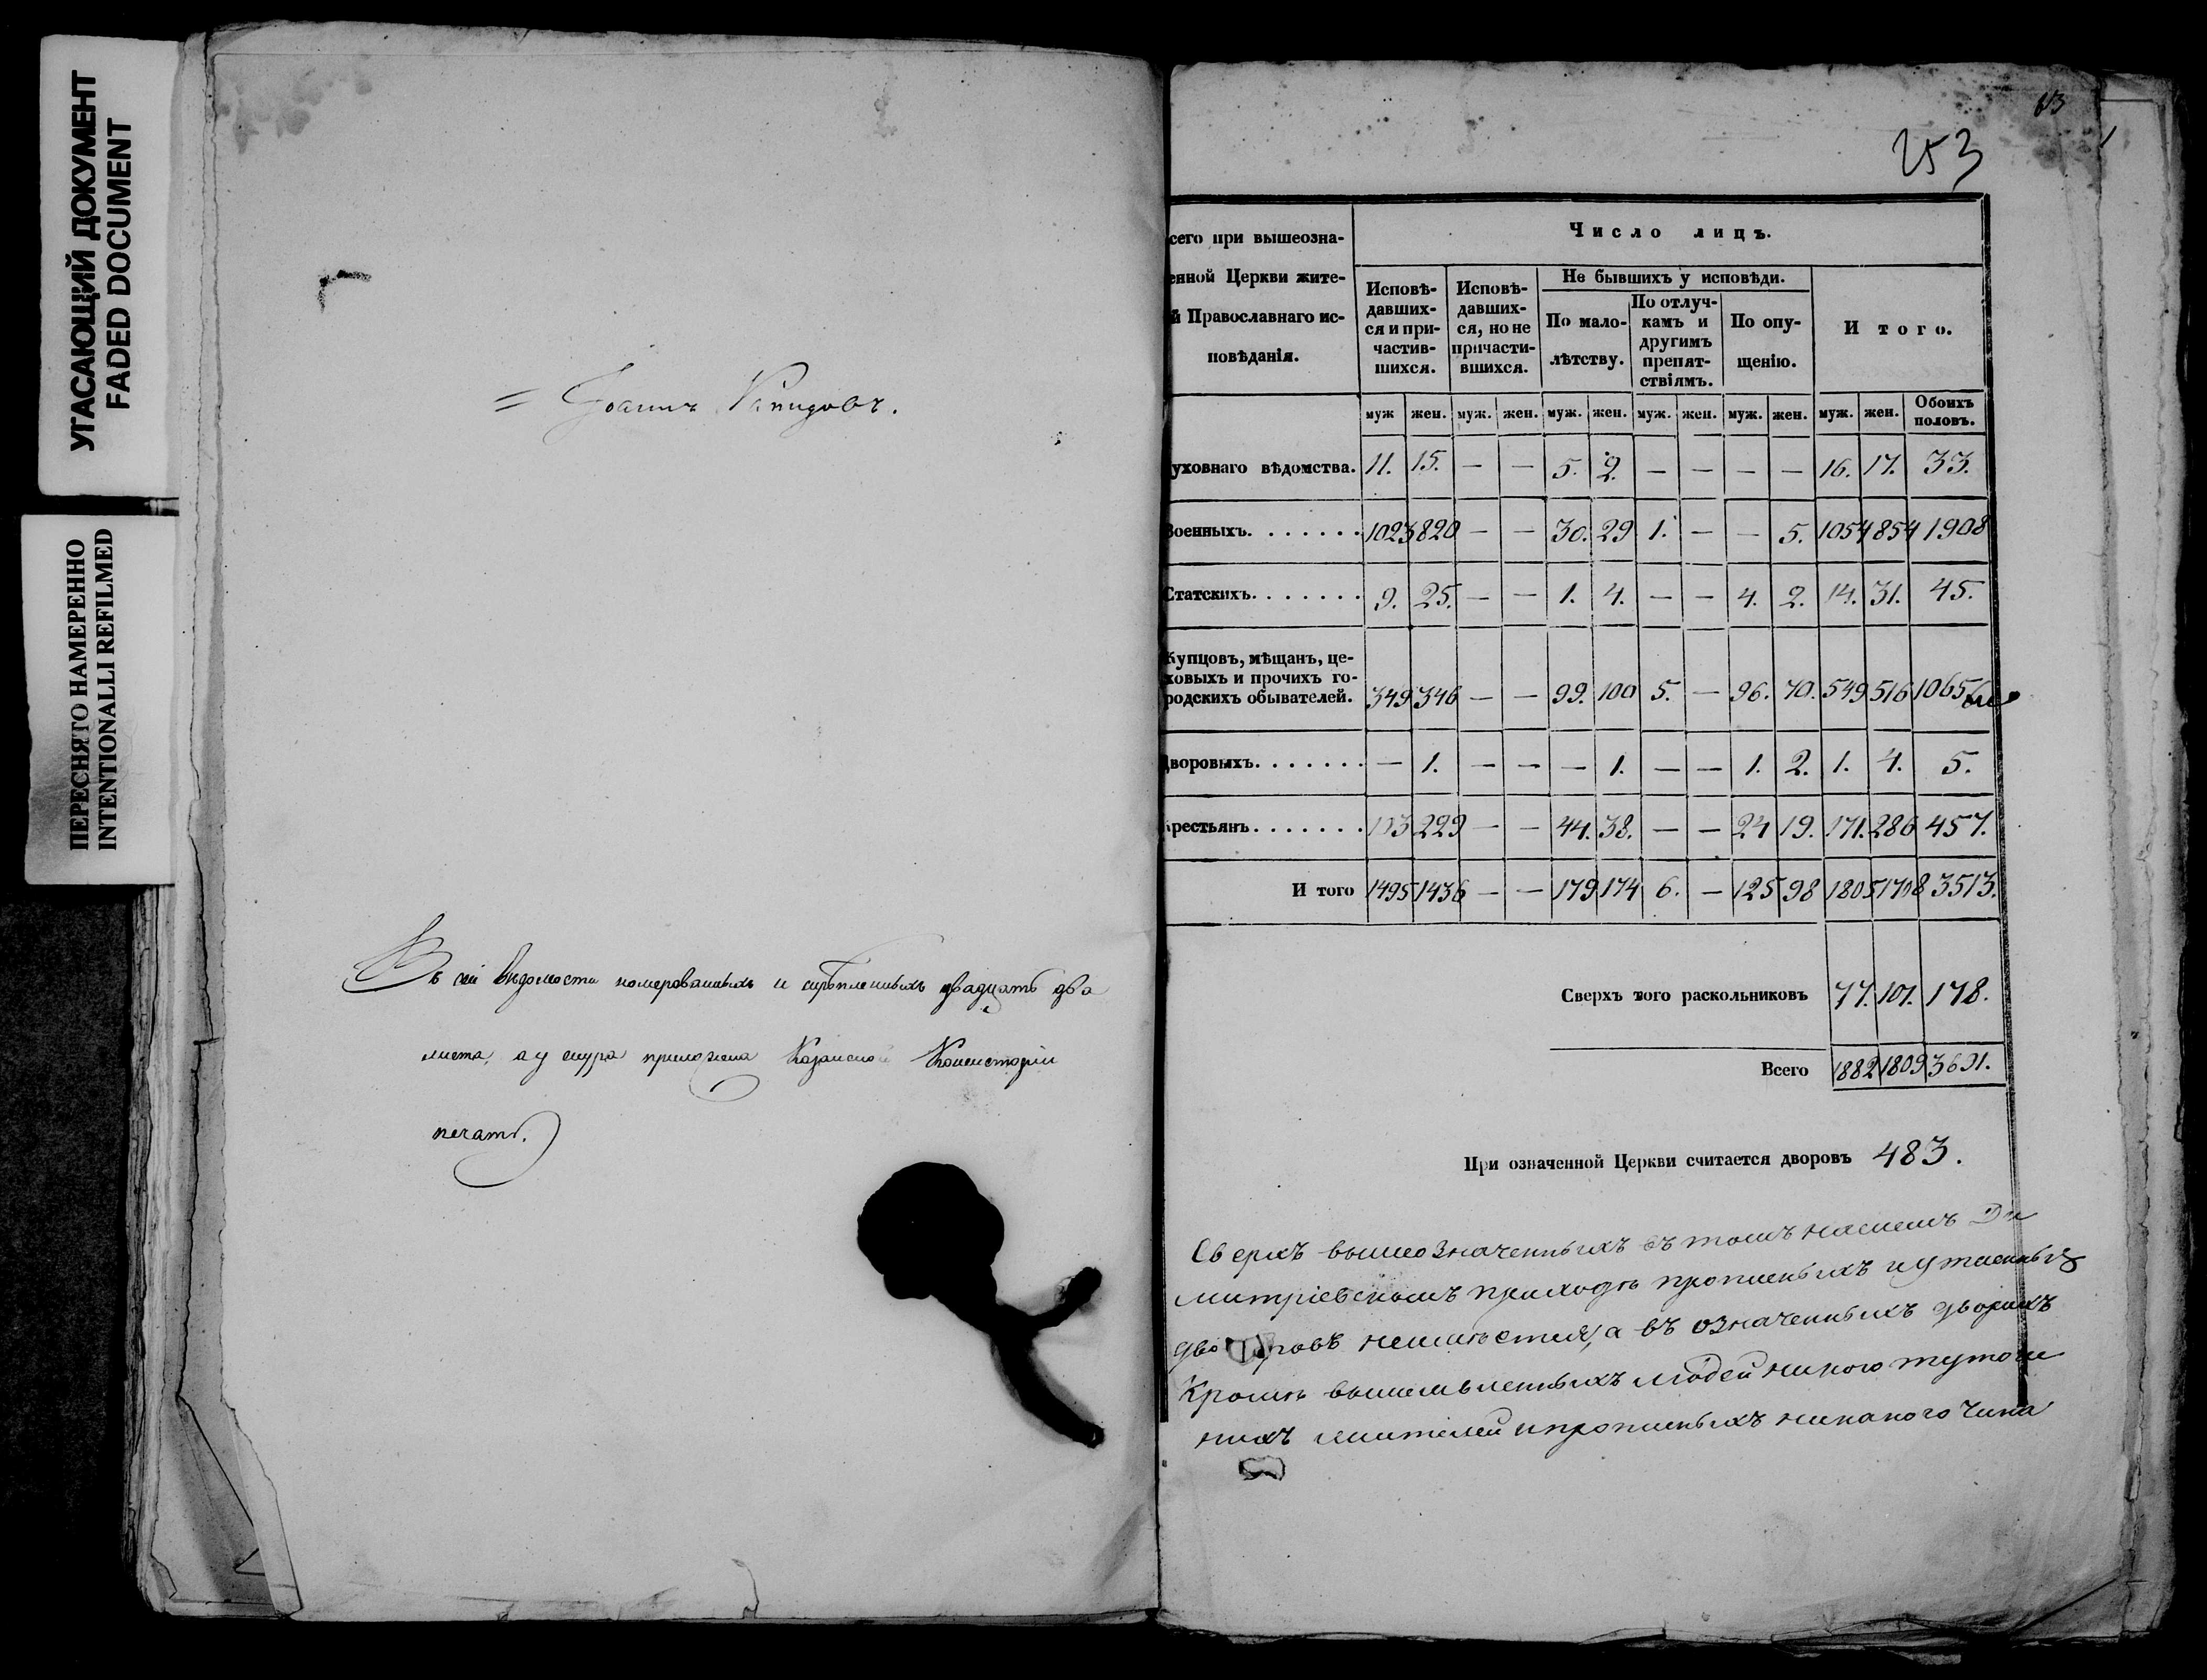 УГАСАЮЩИЙ ДОКУМЕНТ
FADED DOCUMENT
ПЕРЕСНЯТО НАМЕРЕННО
INTENTIONALLI REFILMED
= Іоаннъ
Въ сей Вѣдомости номерованныхъ и скрѣпленныхъ двадцать два
листа, а у шнура приложена Казанской Консисторіи
печать.
253
сего при вышеозна-
енной Церкви жите-
й Православнаго ис-
повѣданія.
Число лицъ.
Исповѣ-
давших-
ся и при-
частив-
шихся.
Исповѣ-
давших-
ся, но не
причасти-
вшихся.
Не бывшихъ у исповѣди.
По мало-
лѣтству.
По отлуч-
камъ и
другимъ
препят-
ствіямъ.
По опу-
щенію.
И того.
муж жен. муж. жен. муж. жен. муж. жен. муж. жен. муж. жен. Обоихъ
половъ.
уховнаго вѣдомства. 11. 15. — — 5. 2. — — — — 16. 17. 33.
Военныхъ. . . . . . . 1023 820 — — 30. 29 1. — — 5. 1054 854 1908
Статскихъ. . . . . . . 9. 25. — — 1. 4. — — 4. 2. 14. 31. 45.
Купцовъ, мѣщанъ, це-
ховыхъ и прочихъ го-
родскихъ обывателей. 349 346 — — 99. 100 5. — 96. 70. 549 516 1065
Дворовыхъ. . . . . . . — 1. — — — 1. — — 1. 2. 1. 4. 5.
крестьянъ. . . . . . . 103 229 — — 44. 38. — — 24 19. 171. 286 457.
И того 1495 1436 — — 179 174 6. — 125 98 1805 1708 3513.
Сверхъ того раскольниковъ 77. 101. 178.
Всего 1882 1809 3691.
При означенной Церкви считается дворовъ 483.
Сверхъ вышеозначенныхъ въ томъ нашемъ Ди
митріевскомъ приходѣ прописныхъ и утаенныхъ
дворовъ неимѣется, а въ означенныхъ дворахъ
Кромѣ людей никого тутош
нихъ жителей и прописныхъ никакого Чина